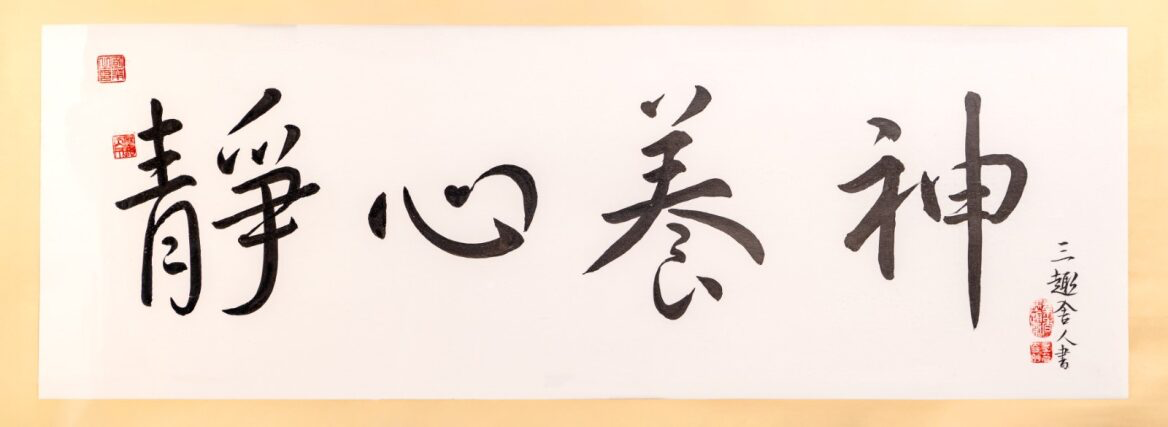 靜心養神
三趣舍人書